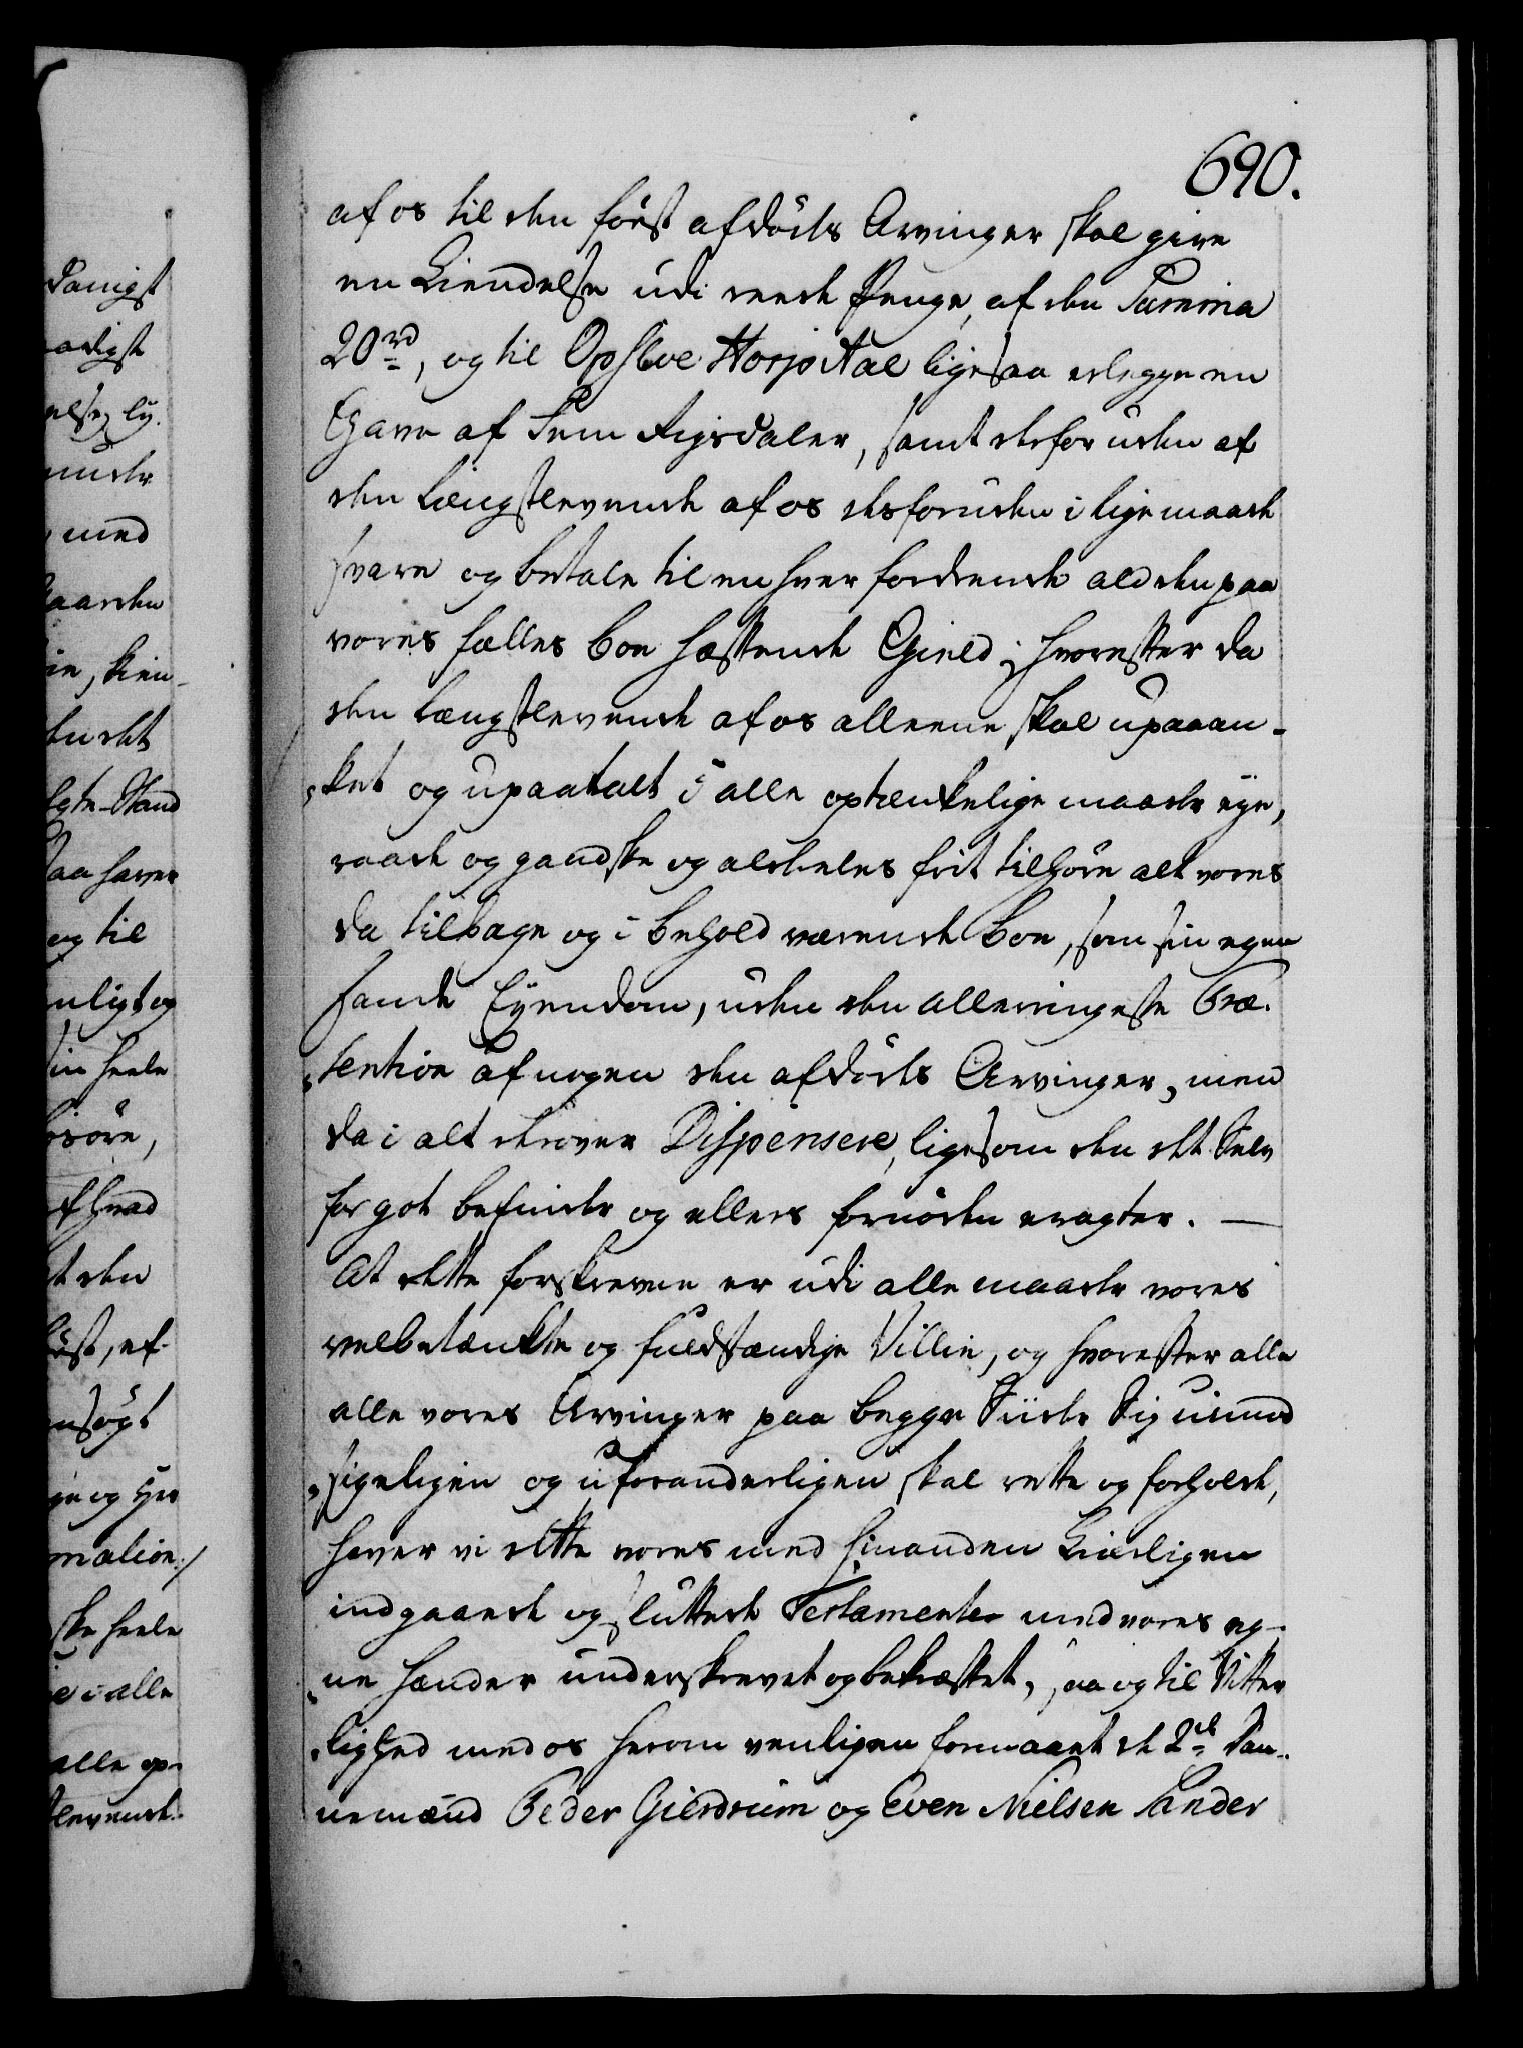 690.
af os til den först afdödes Arvinger skal give
en Kiendelse udi reede Penge, af den Summa
20 rd, og til Opsloe Hospital ligesaa erlegge en
Gave af Fem Rigsdaler, samt desforuden af
den Længstlevende af os desforuden i lige maade
svare og betale til en hver fordrende ald den paa
vores fælles Boe hæftende Gield; hvorefter da
den Længstlevende af os alleene skal upaaan-
ket og upaatalt i alle optenkelige maader eye,
raade og gandske og aldeeles frit tilhöre alt vores
da tilbage og i behold værende Boe, som sin egen
sande Eyendom, uden den allerringeste Præ-
tention af nogen den afdödes Arvinger, men
da i alt derover Disponsere, ligesom den det Selv
for got befinder og ellers fornöden eragter. —
At dette forskrevne er udi alle maader vores
velbetænkte og fuldstændige Villie, og hvorefter alle
alle vores Arvinger paa begge Siider Sig uimod
sigeligen og uforanderligen skal rette og forholde,
haver vi dette vores med hinanden Kierligen
indgaaede og sluttede Testamente med vores eg-
ne hænder underskrevet og bekræftet, saa og til Vitter
lighed med os herom venligen formaaet de 2de Dan-
nemænd Peder Gierdrum og Even Nielsen Sander